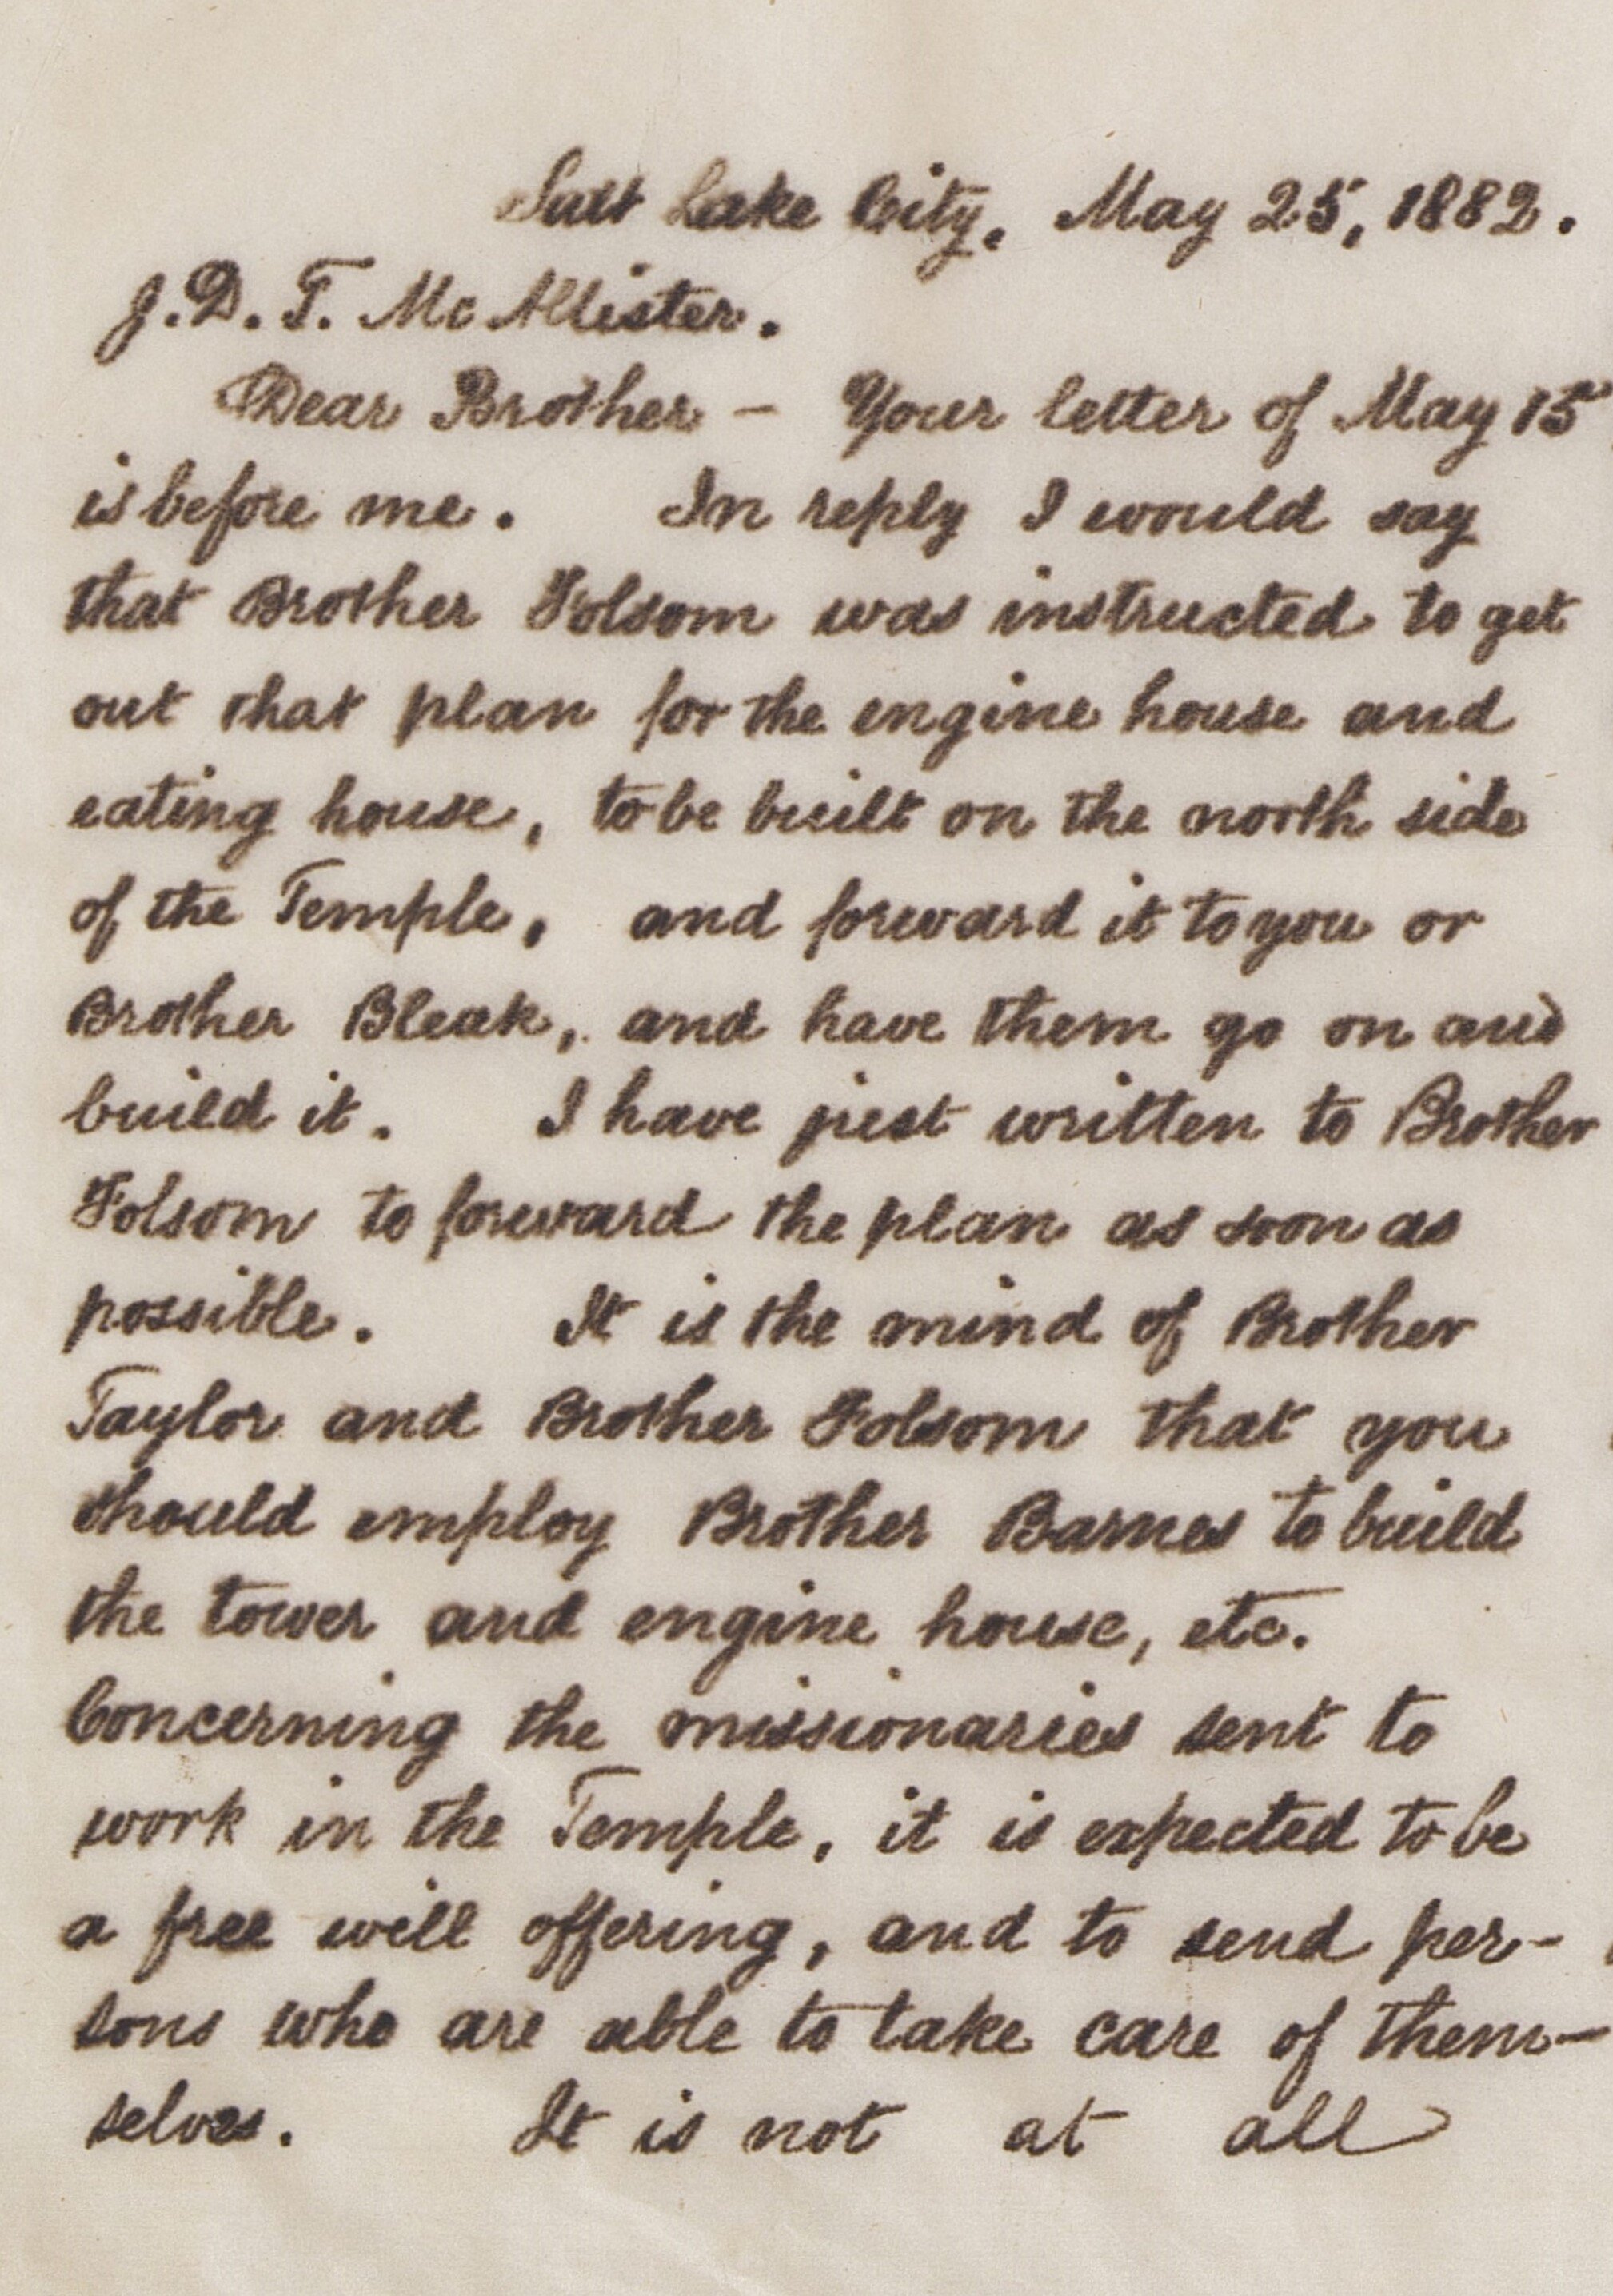 Salt Lake City, May 25, 1882.
J. D. T. McAllister.
Dear Brother – Your letter of May 15
is before me. In reply I would say
that Brother Folsom was instructed to get
out that plan for the engine house and
eating house, to be built on the north side
of the Temple, and forward it to you or
Brother Bleak, and have them go on and
build it. I have just written to Brother
Folsom to forward the plan as soon as
possible. It is the mind of Brother
Taylor and Brother Folsom that you
should employ Brother Barnes to build
the tower and engine house, etc.
Concerning the missionaries sent to
work in the Temple, it is expected to be
a free will offering, and to send per-
sons who are able to take care of them-
selves. It is not at all